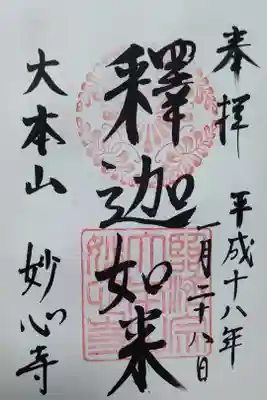 奉拝 平成十八年
一月二十八日
釋迦如来
大本山 妙心寺